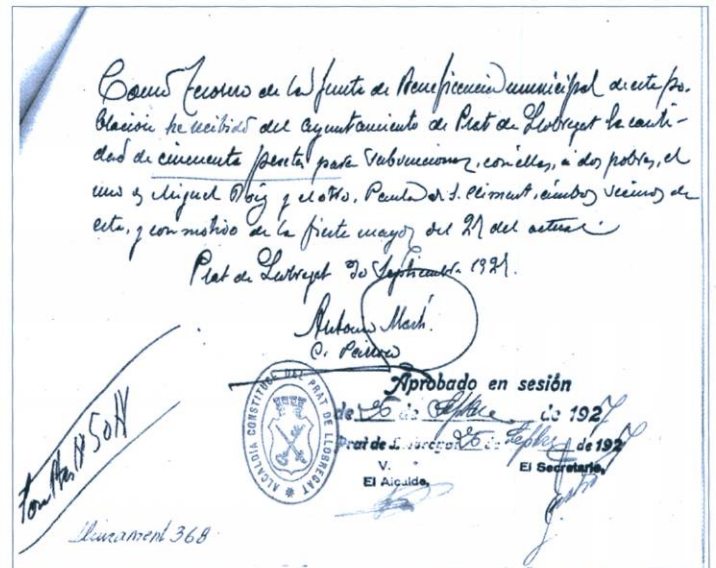 Como Tesorero de la Junta de Beneficencia municipal de esta po-
blación he recibido del ayuntamiento de Prat de Llobregat la canti-
dad de cincuenta pesetas para subvencionar, con ellas, a dos pobres, el
uno es Miguel Roig y el otro, Paula de S. Climent, ambos vecinos de
esta, y con motivo de la fiesta mayor del 27 del actual.
Prat de Llobregat 30 Septiembre 1927.
Antonio Martí
Aprobado en sesión
de 26 de Spbre de 1927
Prat de Llobregat 26 de Spbre de 1927
V.
El Alcalde,
El Secretario,
ALCALDIA CONSTITUC. DEL PRAT DE LLOBREGAT
Lliurament 368